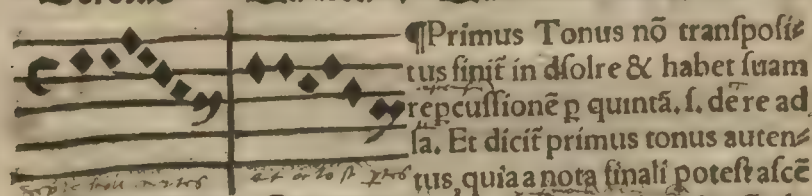 ¶Primus Tonus nõ tranſpoſi⸗
tus finit̃ in dſolre & habet ſuam
repcuſſionẽ p quintã. ſ. de re ad
la. Et dicit̃ primus tonus auten⸗
tus, quia a nota finali poteſt aſcẽ